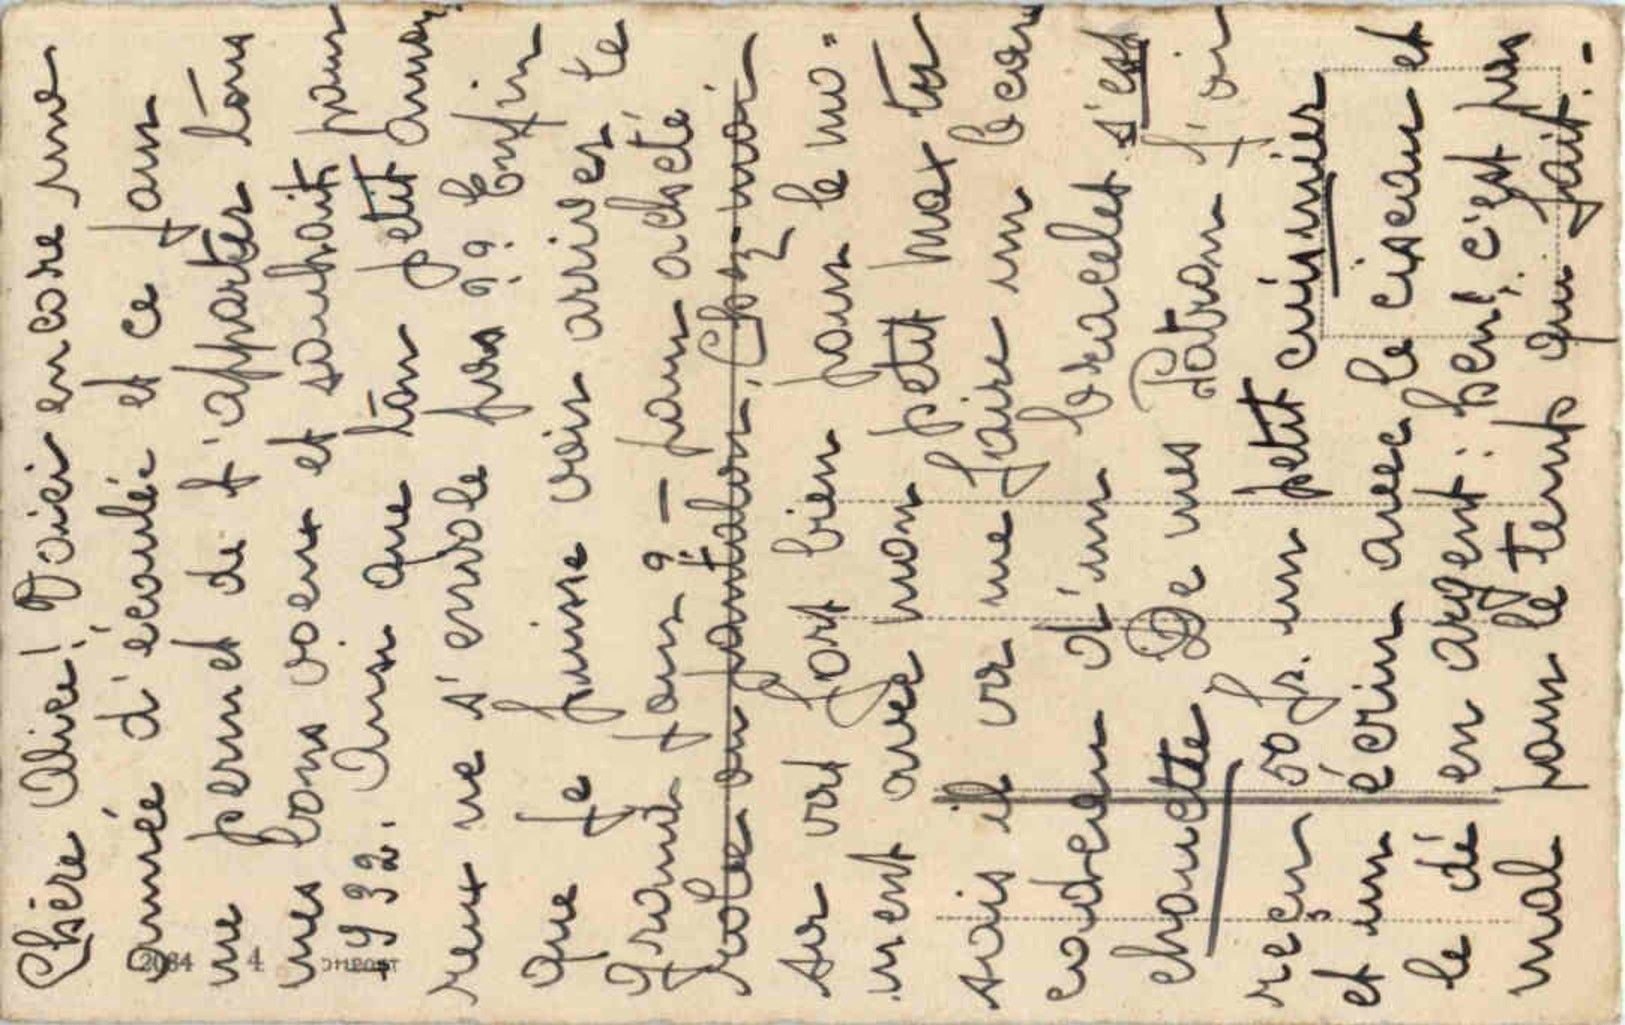 Chère Alice! Voici encore une
année d'écoulée et ce jour
me permet de t'apporter tous
mes bons voeux et souhaits pour
1932. Ainsi que ton petit amou-
reux ne s'envole pas?? Enfin
que je puisse voir arriver te
grand jour? — pour acheté
robe ou pantalon. Chez-moi
sa va fort bien pour le mo-
ment avec mon petit max tu
sais il va me faire un beau
cadeau d'un bracelet s'est
chouette. De mes Patrons j'ai
reçu 50 fr. un petit cuisinier
et un écrin avec le ciseau et
le dé en argent: hein! c'est pas
mal pour le temps qu fait.-
2084 4